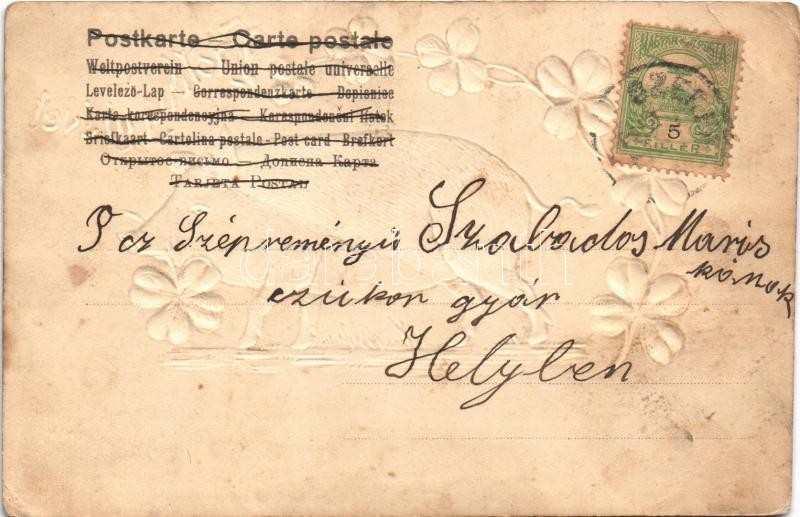 Postkarte — Carte postale
Weltpostverein — Union postale universelle
Levelező-Lap — Correspondenzkarte — Dopisnice
Karta korespondencyjna — Korespondenční lístek
Briefkaart — Cartolina postale — Post card — Brefkort
Открытое письмо — Дописна Карта
Tarjeta Postal
MAGYAR KIR. POSTA
5
FILLÉR
P cz Szépreményű Szabados Maris
kának
czukor gyár
Helyben
darabanth